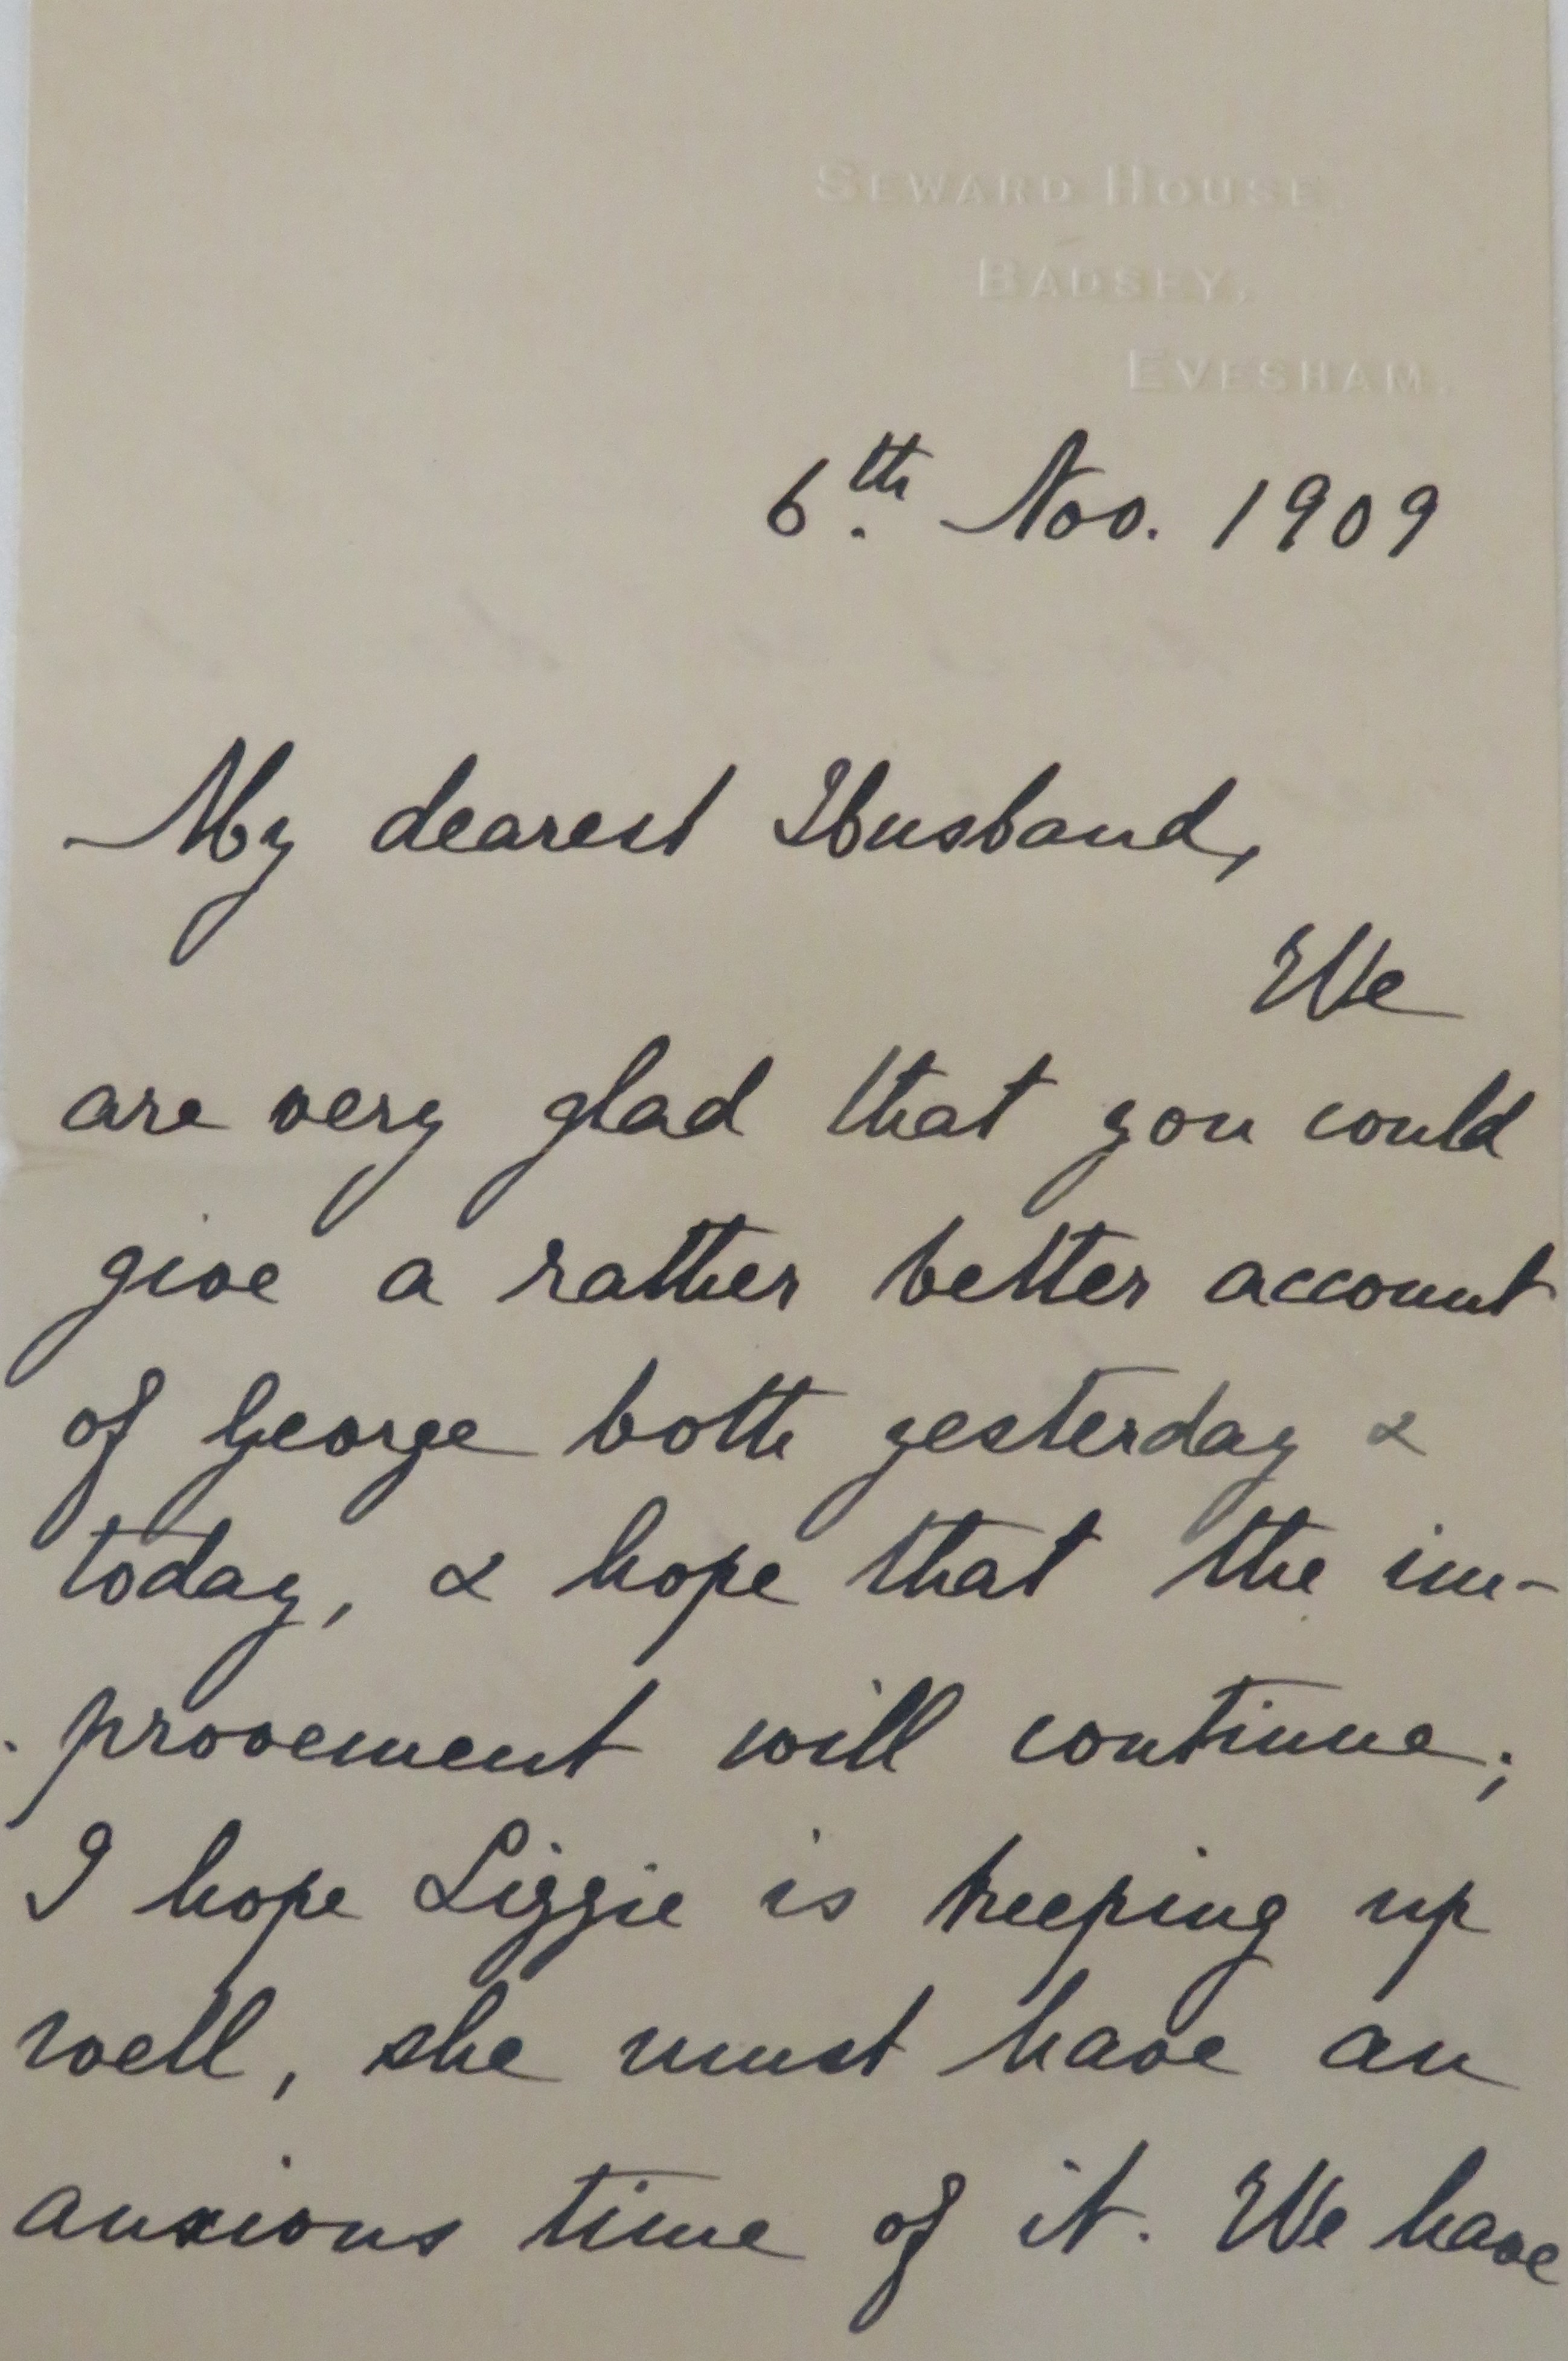 SEWARD HOUSE
BADSEY,
EVESHAM.
6th. Nov. 1909
My dearest Husband,
We
are very glad that you could
give a rather better account
of George both yesterday &
today, & hope that the im-
provement will continue;
I hope Lizzie is keeping up
well, she must have an
anxious time of it. We have